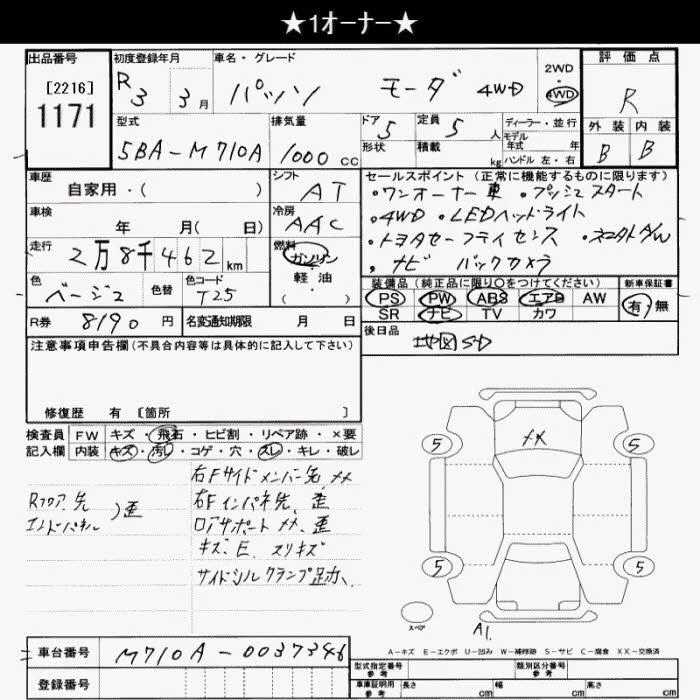 ★1オーナー★
出品番号 初度登録年月 車名・グレード 2WD 評価点
[2216] R3 3月 パッソ モーダ 4WD 4WD R
1171
型式 排気量 ドア 定員 ディーラー・並行 外装 内装
5BA-M710A 1000cc 5 5人 モデル年式 年式 B B
形状 積載 kg ハンドル 左・右
車歴 シフト セールスポイント(正常に機能するものに限ります)
自家用・( ) AT ・ワンオーナー車 ・プッシュスタート
車検 冷房 ・4WD ・LEDヘッドライト
年 月( 日) AAC
走行 燃料 ・トヨタセーフティセンス
2万8千462km ガソリン ナビ バックカメラ
軽油
・( )
色 色替 色コード 装備品(純正品に限り○をつけてください) 新車保証書
ベージュ T25 PS PW ABS エアB AW 有・無
SR ナビ TV カワ
R券 8190円 名変通知期限 月 日 後日品
地図SD
注意事項申告欄(不具合内容等は具体的に記入して下さい)
修復歴 有 〔箇所 〕
検査員 FW キズ・飛石・ヒビ割・リペア跡・×要
記入欄 内装 キズ・汚レ・コゲ・穴・スレ・キレ・破レ
右Fサイドメンバー先、メメ
Rフロア先 右Fインパネ先、歪
エンドパネル )歪 ロアサポート メメ、歪
キズ、E、スリキズ
サイドシルクランプ跡
メX
5 5
5 5
スペア A1
A-キズ E-エクボ U-凹み W-補修跡 S-サビ C-腐食 XX-交換済
車台番号 M710A-0037346
登録番号
型式指定番号 参考 類別区分番号 参考
車庫証明用 参考 長さ cm 幅 cm 高さ cm